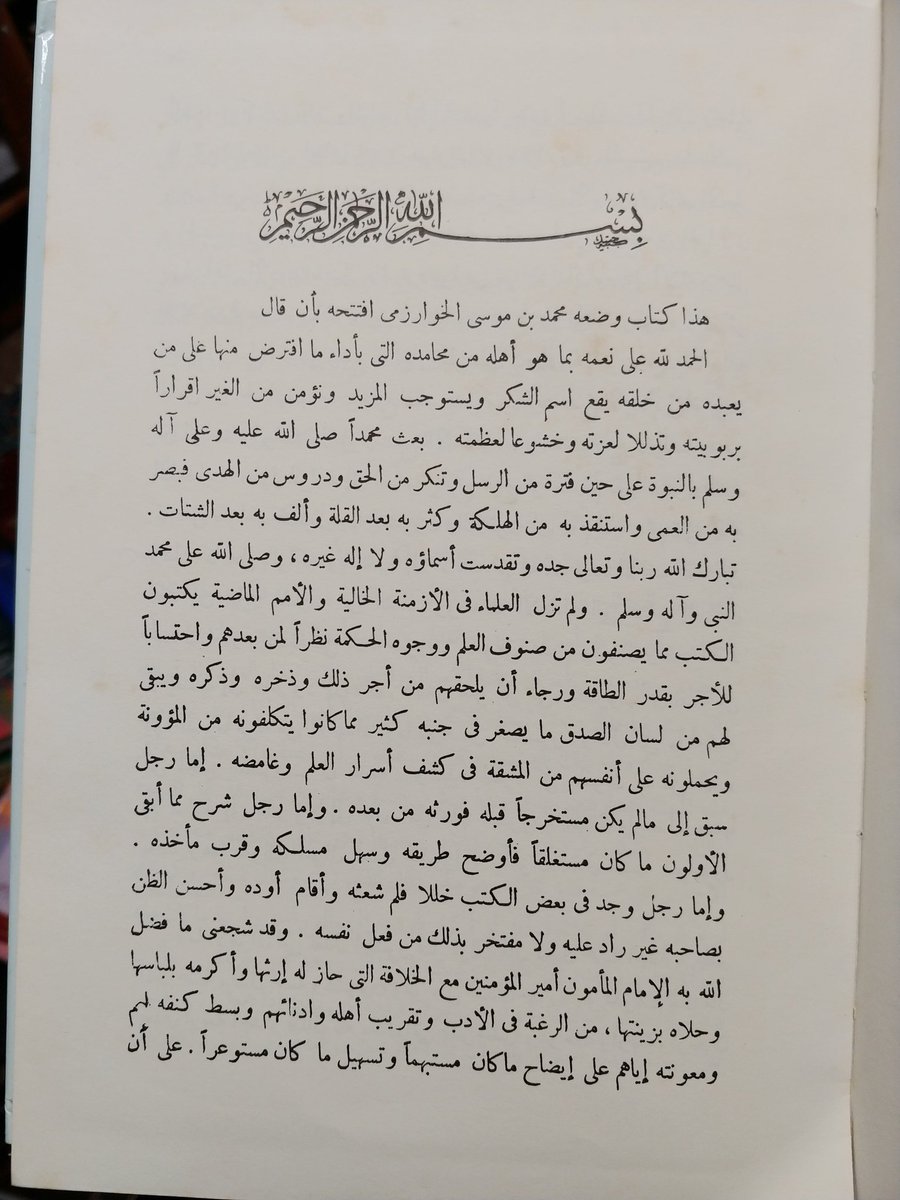 بسم الله الرحمن الرحيم
هذا كتاب وضعه محمد بن موسى الخوارزمى افتتحه بأن قال
الحمد لله على نعمه بما هو أهله من محامده التى بأداء ما افترض منها على من
يعبده من خلقه يقع اسم الشكر ويستوجب المزيد ونؤمن من الغير اقراراً
بربوبيته وتذللا لعزته وخشوعا لعظمته . بعث محمداً صلى الله عليه وعلى آله
وسلم بالنبوة على حين فترة من الرسل وتنكر من الحق ودروس من الهدى فبصر
به من العمى واستنقذ به من الهلكة وكثر به بعد القلة وألف به بعد الشتات .
تبارك الله ربنا وتعالى جده وتقدست أسماؤه ولا إله غيره ، وصلى الله على محمد
النبى وآله وسلم . ولم تزل العلماء فى الأزمنة الخالية والأمم الماضية يكتبون
الكتب مما يصنفون من صنوف العلم ووجوه الحكمة نظراً لمن بعدهم واحتساباً
للأجر بقدر الطاقة ورجاء أن يلحقهم من أجر ذلك وذخره وذكره ويبقى
لهم من لسان الصدق ما يصغر فى جنبه كثير مما كانوا يتكلفونه من المؤونة
ويحملونه على أنفسهم من المشقة فى كشف أسرار العلم وغامضه . إما رجل
سبق إلى مالم يكن مستخرجاً قبله فورثه من بعده . وإما رجل شرح مما أبقى
الأولون ما كان مستغلقاً فأوضح طريقه وسهل مسلكه وقرب مأخذه .
وإما رجل وجد فى بعض الكتب خللا فلم شعثه وأقام أوده وأحسن الظن
بصاحبه غير راد عليه ولا مفتخر بذلك من فعل نفسه . وقد شجعنى ما فضل
الله به الإمام المأمون أمير المؤمنين مع الخلافة التى حاز له إرثها وأكرمه بلباسها
وحلاه بزينتها ، من الرغبة فى الأدب وتقريب أهله وادنائهم وبسط كنفه لهم
ومعونته إياهم على إيضاح ما كان مستبهماً وتسهيل ما كان مستوعراً . على أن